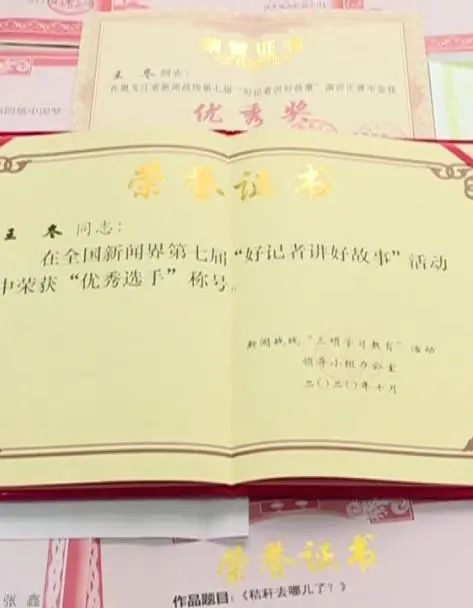 荣誉证书
王冬同志:
在黑龙江省新闻战线第七届“好记者讲好故事”演讲比赛中荣获
优秀奖
中国梦
荣誉证书
王冬同志:
在全国新闻界第七届“好记者讲好故事”活动
中荣获“优秀选手”称号。
新闻战线“三项学习教育”活动
领导小组办公室
二〇二〇年十月
荣誉证书
张鑫
作品题目:《秸秆去哪儿了?》